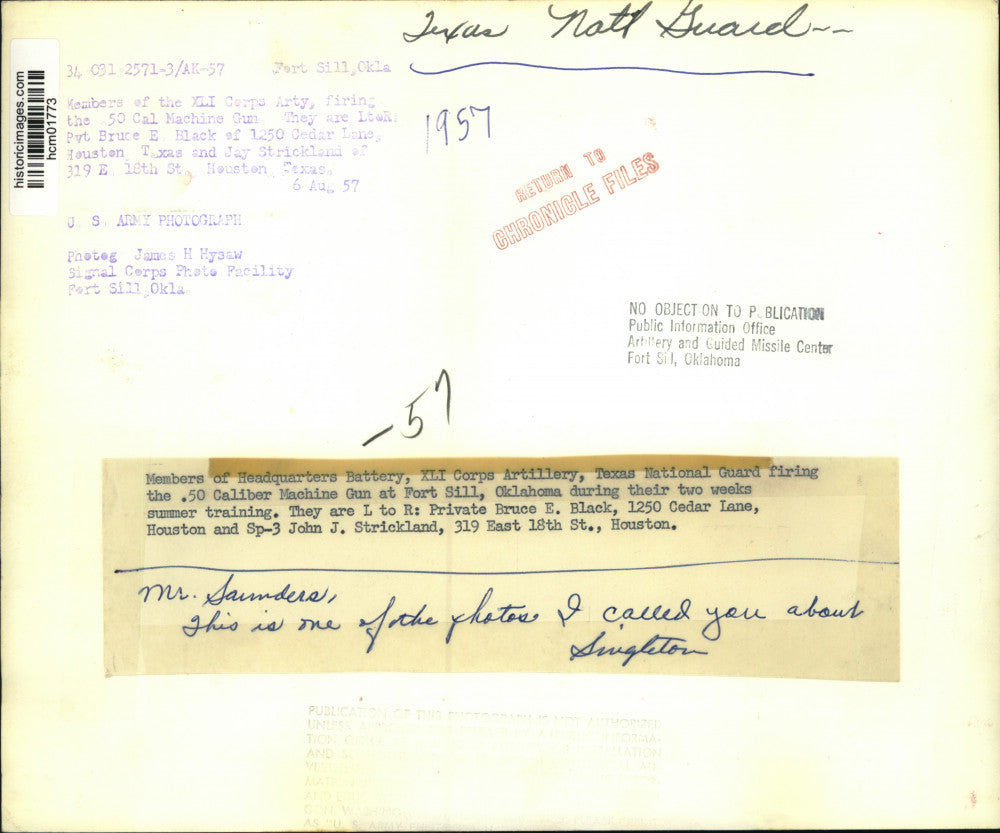 Texas Natl Guard--
historicimages.com
hcm01773
34-031-2571-3/AK-57 Fort Sill, Okla
Members of the XLI Corps Arty, firing
the .50 Cal Machine Gun They are LtoR:
Pvt Bruce E. Black of 1250 Cedar Lane,
Houston Texas and Jay Strickland of
319 E. 18th St., Houston, Texas.
6 Aug 57
U. S. ARMY PHOTOGRAPH
Photog James H Hysaw
Signal Corps Photo Facility
Fort Sill, Okla.
1957
RETURN TO
CHRONICLE FILES
NO OBJECTION TO PUBLICATION
Public Information Office
Artillery and Guided Missile Center
Fort Sill, Oklahoma
-57
Members of Headquarters Battery, XLI Corps Artillery, Texas National Guard firing
the .50 Caliber Machine Gun at Fort Sill, Oklahoma during their two weeks
summer training. They are L to R: Private Bruce E. Black, 1250 Cedar Lane,
Houston and Sp-3 John J. Strickland, 319 East 18th St., Houston.
Mr. Saunders,
This is one of the photos I called you about
Singleton
PUBLICATION OF THIS PHOTOGRAPH IS NOT AUTHORIZED
UNLESS
TION
AND
AS "U. S. ARMY